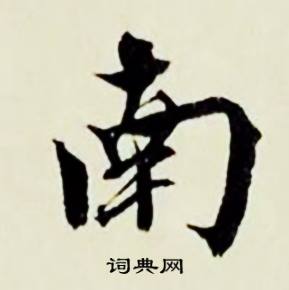 南
词典网